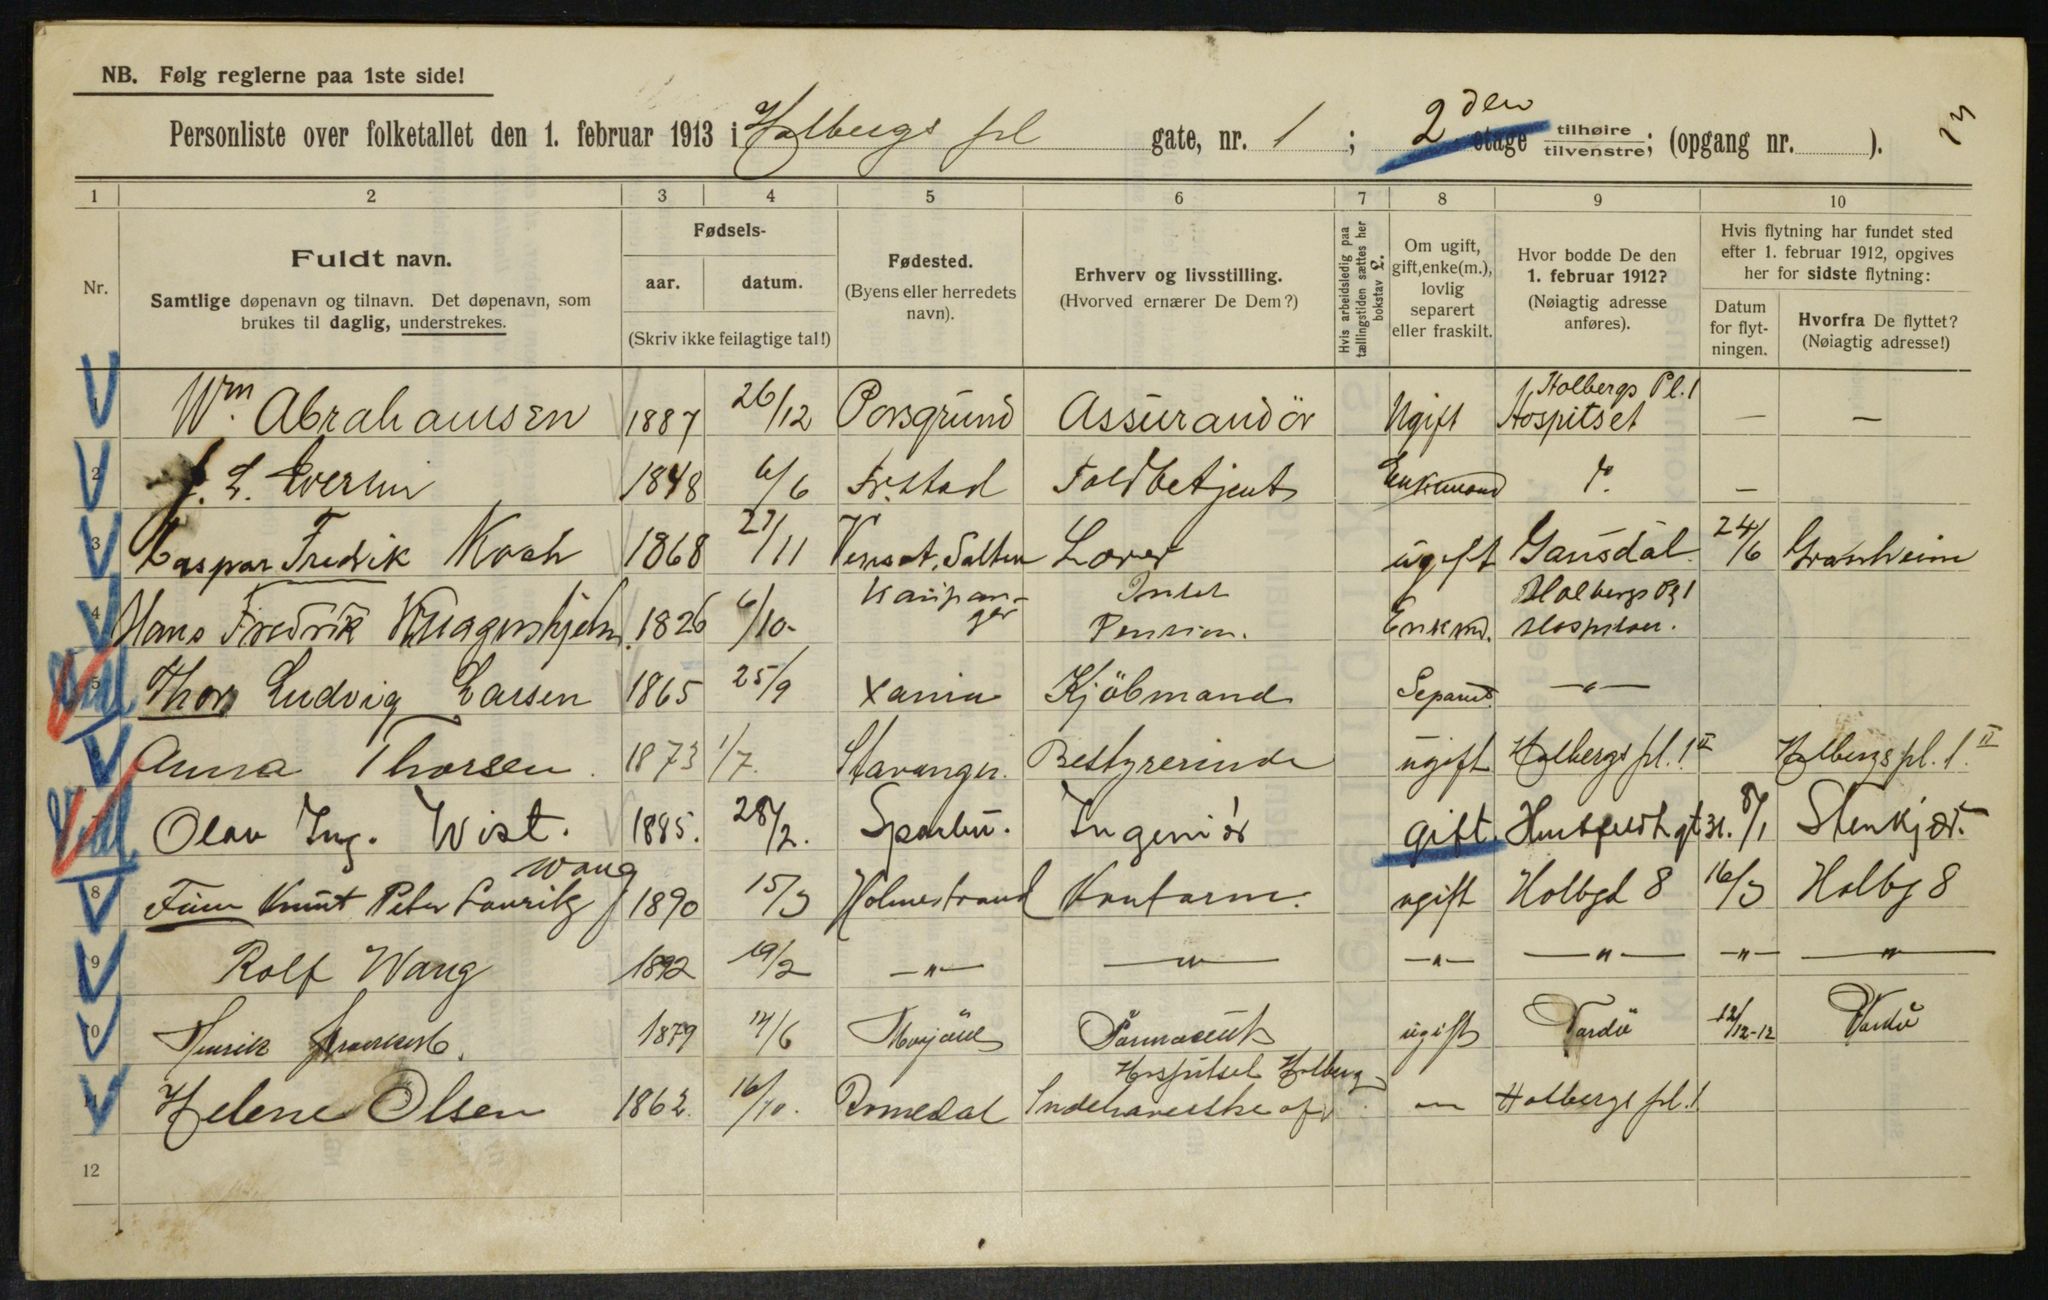 NB. Følg reglerne paa 1ste side!
Personliste over folketallet den 1. februar 1913 i Holbergs pl gate, nr. 1 ; 2den etage tilhøire tilvenstre; (opgang nr. ).
1 2 3 4 5 6 7 8 9 10
Nr.
Fuldt navn.
Samtlige døpenavn og tilnavn. Det døpenavn, som
brukes til daglig, understrekes.
Fødsels-
aar. datum.
(Skriv ikke feilagtige tal!)
Fødested.
(Byens eller herredets
navn).
Erhverv og livsstilling.
(Hvorved ernærer De Dem?)
Hvis arbeidsledig paa
tællingstiden sættes her
bokstav L.
Om ugift,
gift, enke(m.),
lovlig
separert
eller fraskilt.
Hvor bodde De den
1. februar 1912?
(Nøiagtig adresse
anføres).
Hvis flytning har fundet sted
efter 1. februar 1912, opgives
her for sidste flytning:
Datum
for flyt-
ningen.
Hvorfra De flyttet?
(Nøiagtig adresse!)
Wm. Abrahamsen 1887 26/12 Porsgrund Assurandör Ugift Holbergs Pl. 1 Hospitset — —
2 L. Eversen 1848 6/6 Fr.stad Toldbetjent Enkemand do. —
3 Caspar Fredrik Koch 1868 27/11 Lærer ugift Gausdal 24/6 Granheim
4 Hans Fredrik 1826 6/10 Kaupanger Pension. Enkmd. Holbergs Pl 1
5 Thor Ludvig Larsen 1865 25/9 Xania Kjöbmand Separert —"—
Anna Thorsen. 1873 1/7. Stavanger. Bestyrerinde ugift Holbergs pl. 1 II Holbergs pl. 1. II
Olav Ing. Wist. 1885. 28/2. Sparbu. Ingeniör gift. Huitfeldt gt 31. 8/1 Stenkjær.
8 Finn Knut Peter Lauritz Wang 1890 15/3 Holmestrand Kontorm. ugift Holbgt 8 16/3 Holbg 8
9 Rolf Wang 1892 19/2 —"— —"— —"— —"— —"— —"—
10 Henrik 1879 14/6 ugift Vardö 12/12-12 Vardö
11 Helene Olsen 1862. 16/10. Romedal Indehaverske af Hospitset Holberg — Holbergs pl. 1.
12